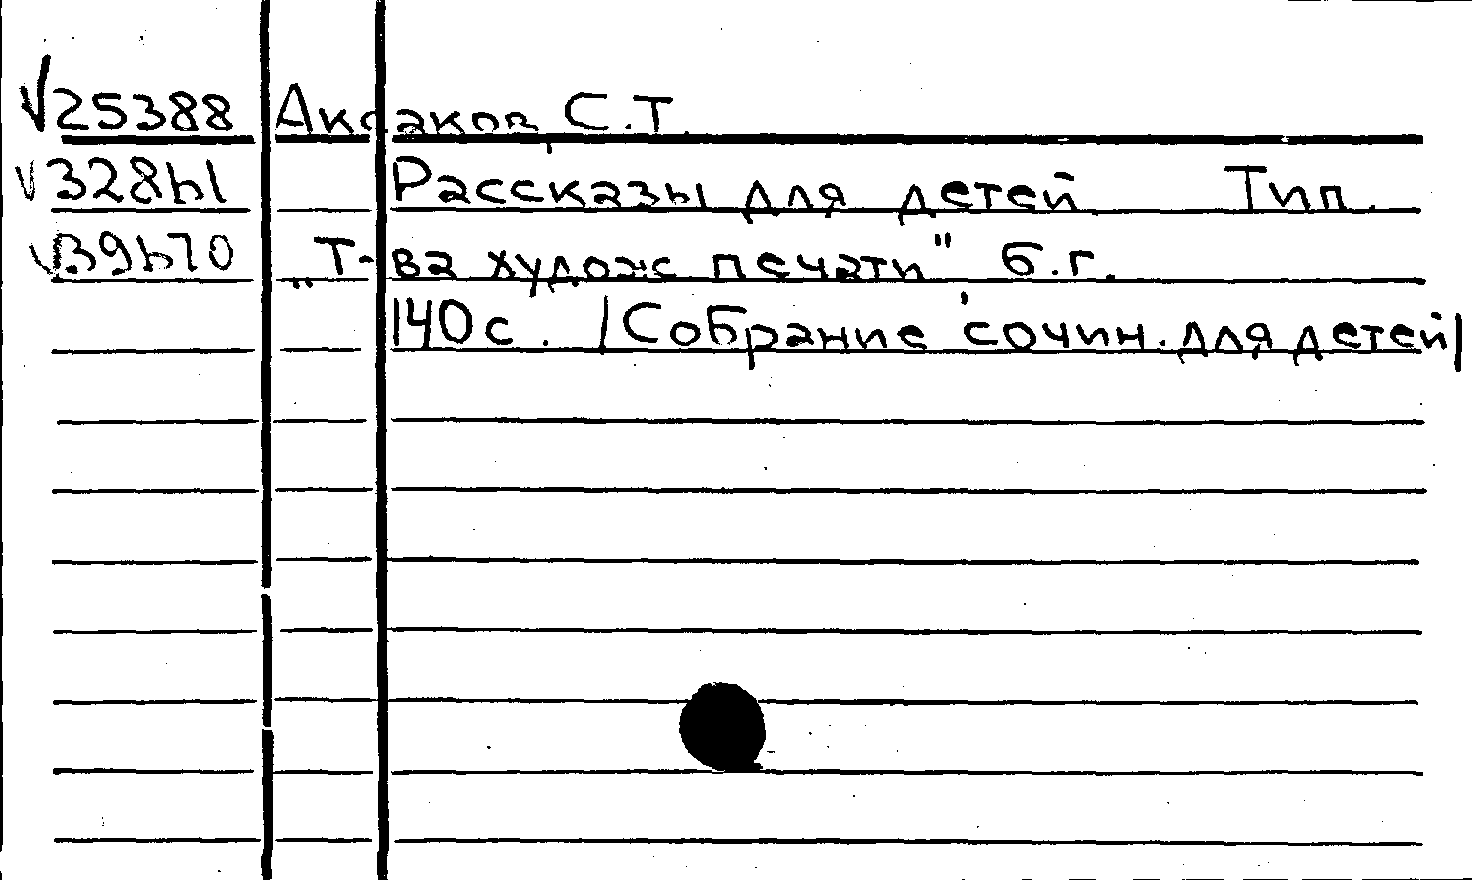 √25388 Аксаков, С.Т.
√32861 Рассказы для детей Тип.
√39670 „Т-ва худож. печати" б.г.
140с. /Собрание сочин. для детей/